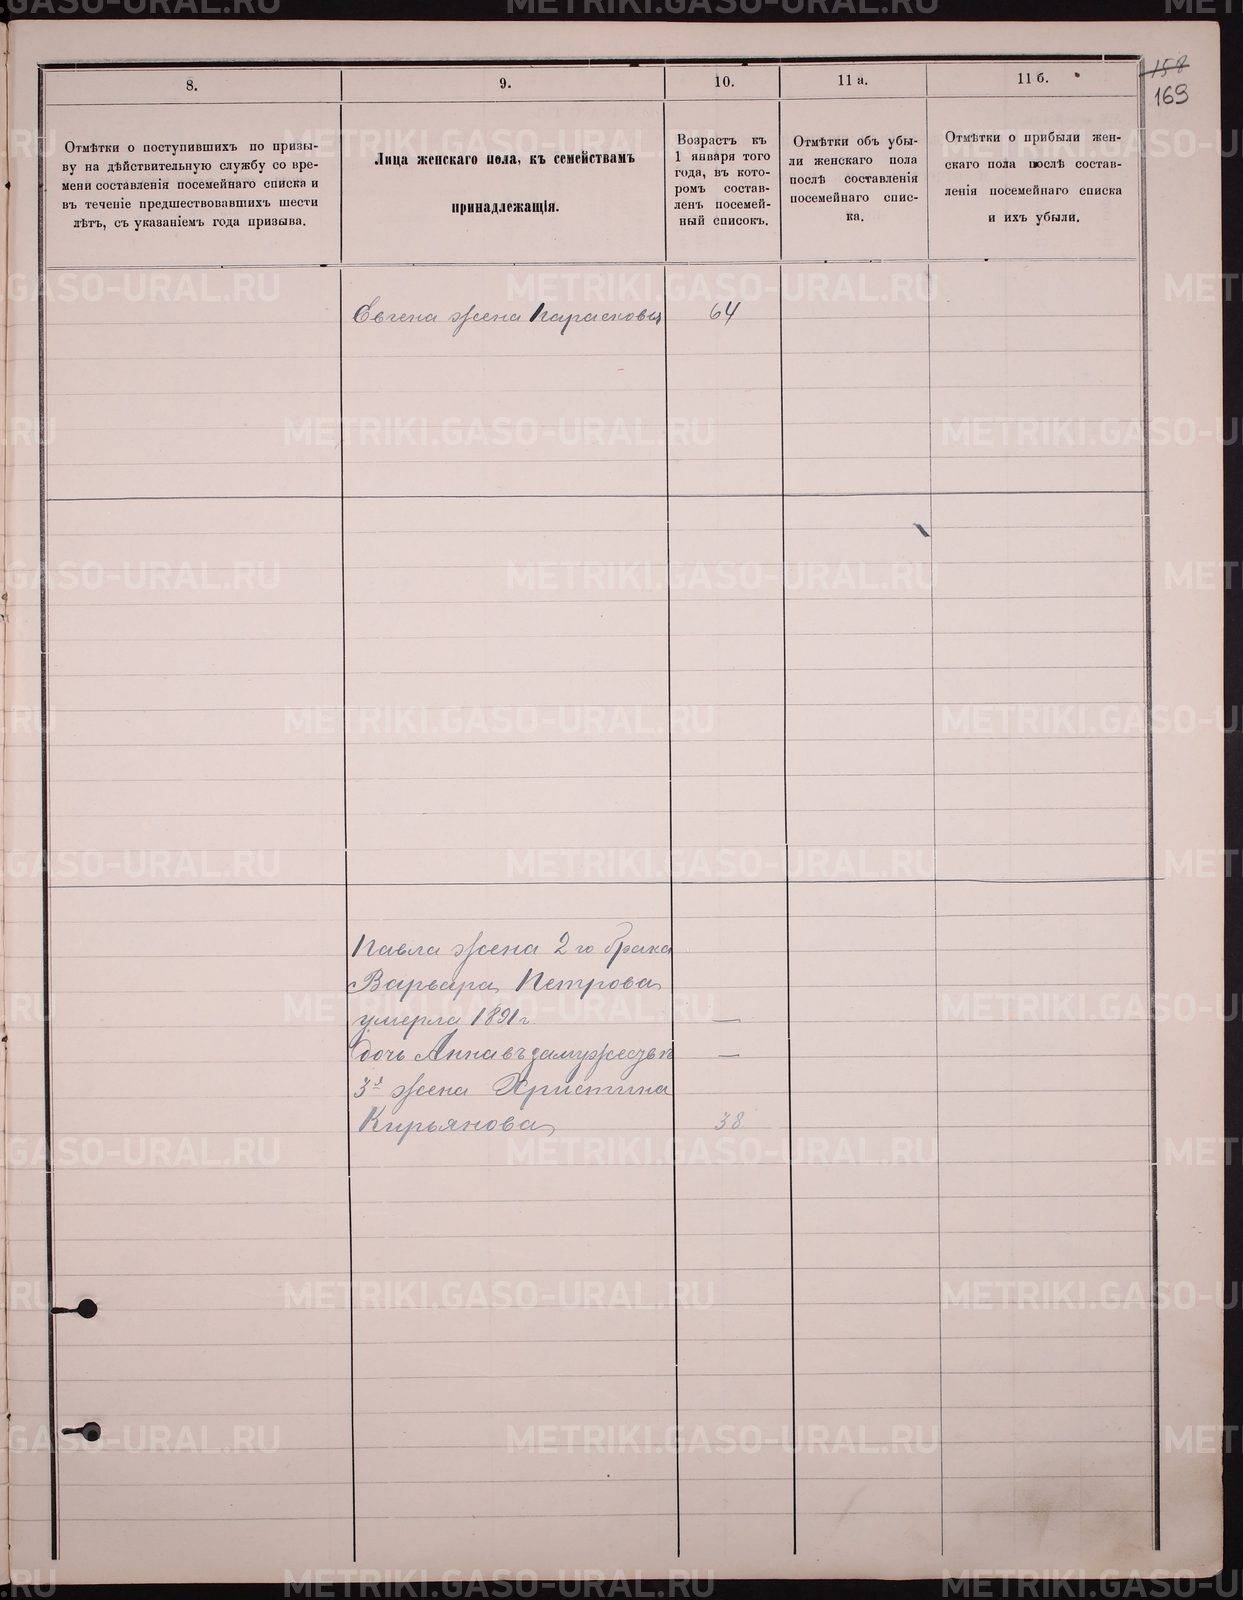 158
169
8.
9.
10.
11 а.
11 б.
Отмѣтки о поступившихъ по призы-
ву на дѣйствительную службу со вре-
мени составленія посемейнаго списка и
въ теченіе предшествовавшихъ шести
лѣтъ, съ указаніемъ года призыва.
Лица женскаго пола, къ семействамъ
принадлежащія.
Возрастъ къ
1 января того
года, въ кото-
ромъ состав-
ленъ посемей-
ный списокъ.
Отмѣтки объ убы-
ли женскаго пола
послѣ составленія
посемейнаго спис-
ка.
Отмѣтки о прибыли жен-
скаго пола послѣ состав-
ленія посемейнаго списка
и ихъ убыли.
Евгена жена Парасковья 64
Павла жена 2 го брака
Варвара Петрова
умерла 1891 г. —
дочь Анна въ замужествѣ —
3я жена Христина
Кирьянова 38
METRIKI.GASO-URAL.RU